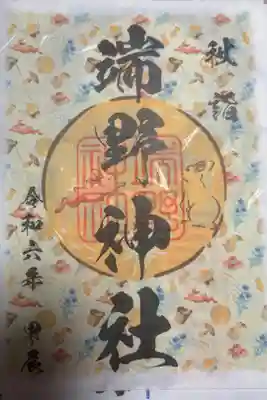 秋詣
端野神社
令和六年 甲辰